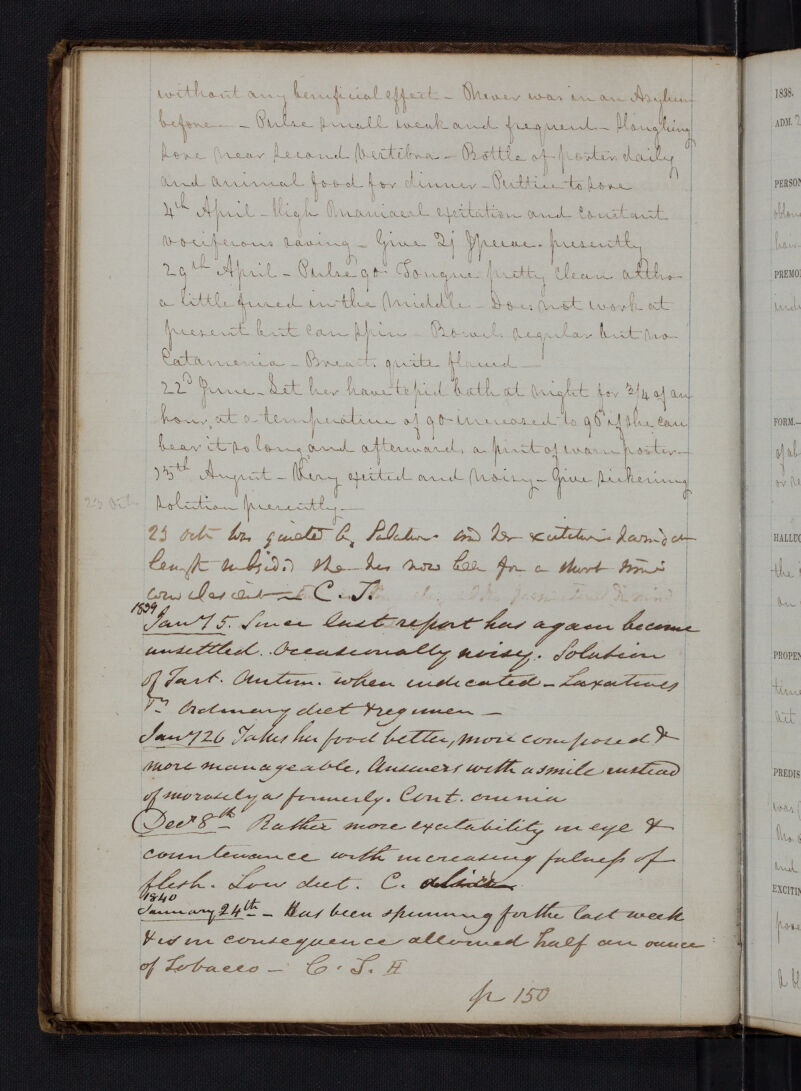 without any beneficial effect – Never was in an Asylum
before – Pulse small weak and frequent – Sloughing
sore near second Vertebra – Bottle of porter daily
and animal food for dinner – Puttice to sore
4th April – High Maniacal excitation and constant
vociferous raving – Give Ipecac. presently
29th April – Pulse 90. Tongue pretty clean altho
a little furred in the middle – Does not work at
present but can spin – Bowels regular but no
Catamenia – Breasts quite flaccid –
22d June – Let her have tepid bath at night for 3/4 of an
hour, at a temperature of 90 – increased to 96 if she can
bear it so long and afterwards a pint of warm porter –
15th August – Very excited and noisy – Give sickening
solution presently –
23 Oct
23 Oct Was quieted by Solution and her excitation having at
length subsided she has now been for a short time
convalescent – C. T.
1839
Jany 5. Since last report has again become
unsettled. Occasionally noisy. Solution
of Tart. Antim. when indicated – Laxatives
Ordinary diet & regimen –
Jany 26 Takes her food better, more composed &
more manageable. Answers with a smile instead
of morosely as formerly. Cont. omnia
Decr 8th Rather more excitability in eye &
countenance with increasing fulness of
flesh. Low diet. C.
1840
January 24th – Has been spinning for the last week
& is in consequence allowed half an ounce
of Tobacco – C. S. H
p 150
1838.
ADM. 2
PERSON
hair
PREMO
FORM.–
of al
or
HALLUC
the
on
PROPEN
time
PREDIS
was
and
EXCITIN